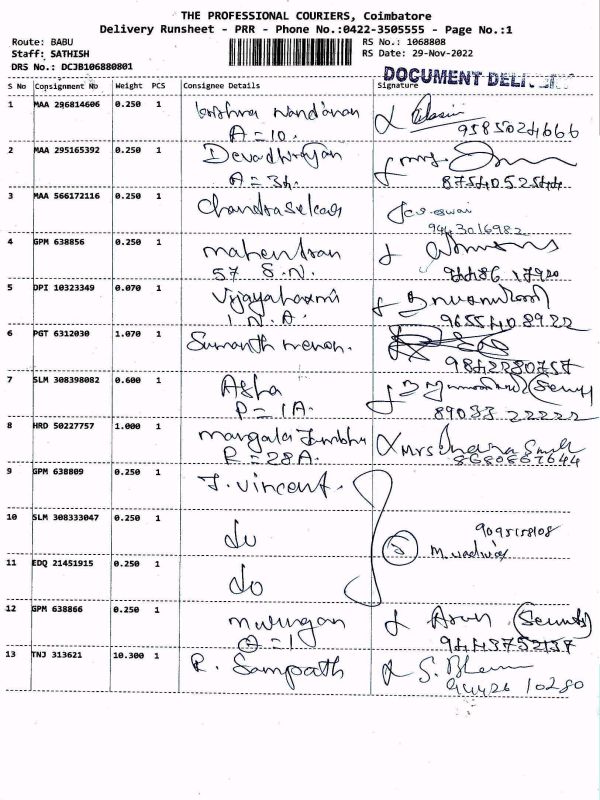 THE PROFESSIONAL COURIERS, Coimbatore
Delivery Runsheet - PRR - Phone No.:0422-3505555 - Page No.:1
Route: BABU
Staff: SATHISH
DRS No.: DCJB106880801
RS No.: 1068808
RS Date: 29-Nov-2022
DOCUMENT DELIVERY
S No Consignment No Weight PCS Consignee Details Signature
1 MAA 296814606 0.250 1 Krishna Nandanan
A = 10. 9585024666
2 MAA 295165392 0.250 1
A = 34. 8754052544
3 MAA 566172116 0.250 1 Chandrasekar
9443016982
4 GPM 638856 0.250 1 Mahentran
57 S.N. 94486 17920
5 DPI 10323349 0.070 1 Vijayalaxmi
I.N.A. 9655408922
6 PGT 6312030 1.070 1 Sumanth Menon.
9842280757
7 SLM 308398082 0.600 1 Asha (Security)
P = 1A. 89033 22222
8 HRD 50227757 1.000 1 Mangala Mrs
R = 28A. 8680867644
9 GPM 638809 0.250 1 J. Vincent.
10 SLM 308333047 0.250 1 do
9095158108
11 EDQ 21451915 0.250 1 do
12 GPM 638866 0.250 1 Murugan Arun (Security)
A = 1 9443752137
13 TNJ 313621 10.300 1 R. Sampath S.
94426 10280